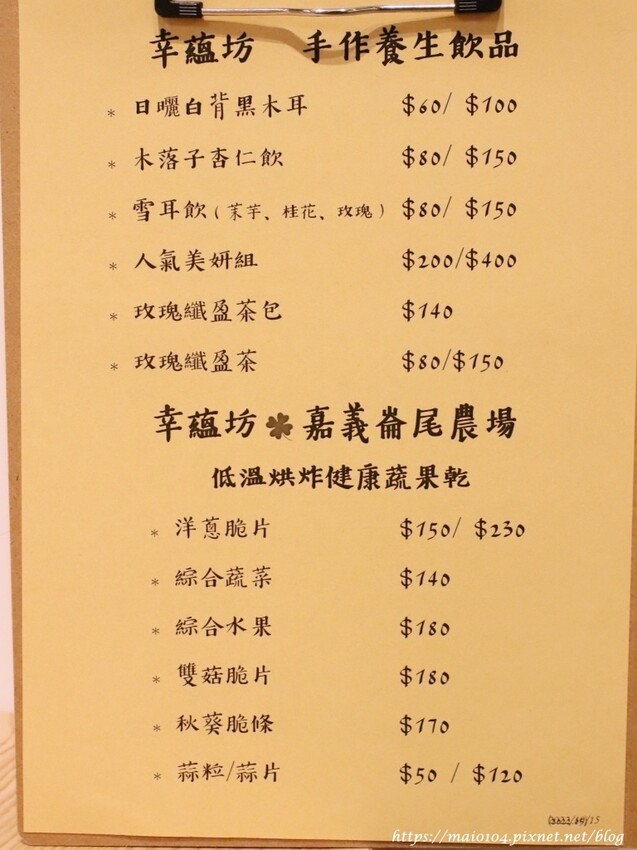 幸蘊坊 手作養生飲品
* 日曬白背黑木耳 $60/ $100
* 木落子杏仁飲 $80/ $150
* 雪耳飲(茉芋、桂花、玫瑰) $80/ $150
* 人氣美妍組 $200/$400
* 玫瑰纖盈茶包 $140
* 玫瑰纖盈茶 $80/$150
幸蘊坊🍀嘉義崙尾農場
低溫烘炸健康蔬果乾
* 洋蔥脆片 $150/ $230
* 綜合蔬菜 $140
* 綜合水果 $180
* 雙菇脆片 $180
* 秋葵脆條 $170
* 蒜粒/蒜片 $50 / $120
https://maio104.pixnet.net/blog